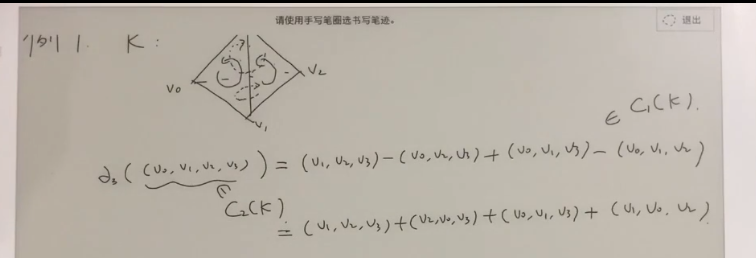 请使用手写笔圈选书写笔迹。
退出
例1. K:
V₀
V₂
V₁
∈ C₁(K).
∂₃((v₀,v₁,v₂,v₃)) = (v₁,v₂,v₃)-(v₀,v₂,v₃)+(v₀,v₁,v₃)-(v₀,v₁,v₂)
∈
C₂(K)
= (v₁,v₂,v₃)+(v₂,v₀,v₃)+(v₀,v₁,v₃)+(v₁,v₀,v₂)